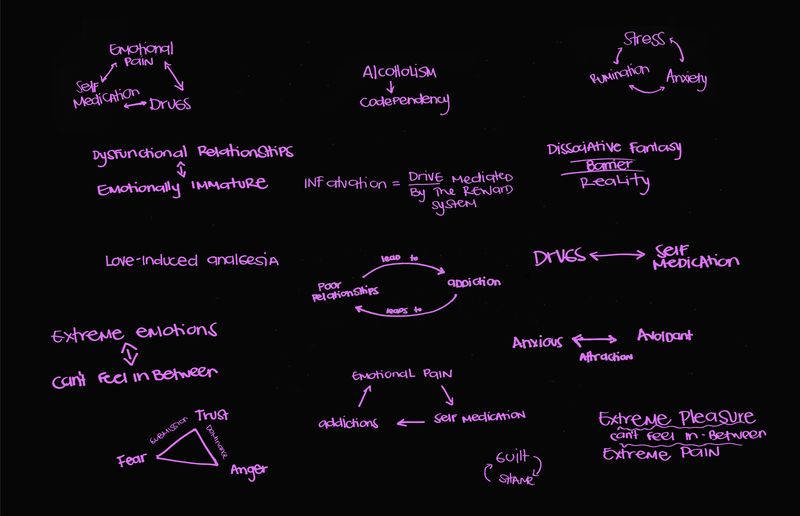 EMOTIONAL
PAIN
SELF
MEDICATION
DRUGS
ALCOHOLISM
CODEPENDENCY
STRESS
RUMINATION
ANXIETY
DYSFUNCTIONAL RELATIONSHIPS
EMOTIONALLY IMMATURE
INFATUATION = DRIVE MEDIATED
BY THE REWARD
SYSTEM
DISSOCIATIVE FANTASY
BARRIER
REALITY
LOVE-INDUCED ANALGESIA
POOR
RELATIONSHIPS
LEAD TO
ADDICTION
LEADS TO
DRUGS
SELF
MEDICATION
EXTREME EMOTIONS
CAN'T FEEL IN BETWEEN
ANXIOUS
AVOIDANT
ATTRACTION
EMOTIONAL PAIN
ADDICTIONS
SELF MEDICATION
TRUST
SUBMISSION
DOMINANCE
FEAR
ANGER
GUILT
SHAME
EXTREME PLEASURE
CAN'T FEEL IN-BETWEEN
EXTREME PAIN